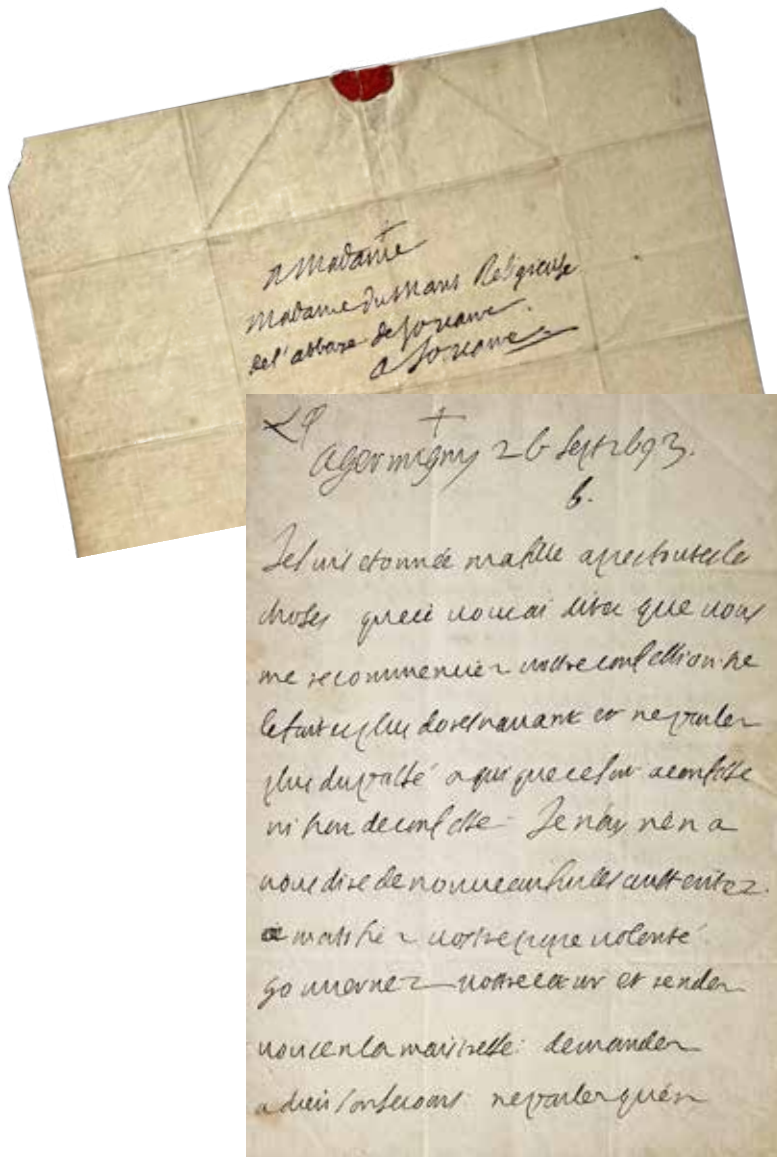 A Madame
Madame du Mans Religieuse
de l'abbaie de Jouarre.
a Jouarre
+
a Germigny 26 Sept 1693.
6.
Je suis etonnée ma fille apres toutes le
choses que ie vous ai dites que vous
me recommenciez vostre confession ne
le faites plus doresnavant et ne parlez
plus du passé a qui que ce soit a confesse
ni hors de confesse. Je n'ay rien a
vous dire de nouveau sur les austeritez.
vostre propre volonté
gouvernez vostre cœur et rendez
vous en la maistresse: demandez
a dieu son secours ne parlez qu'en